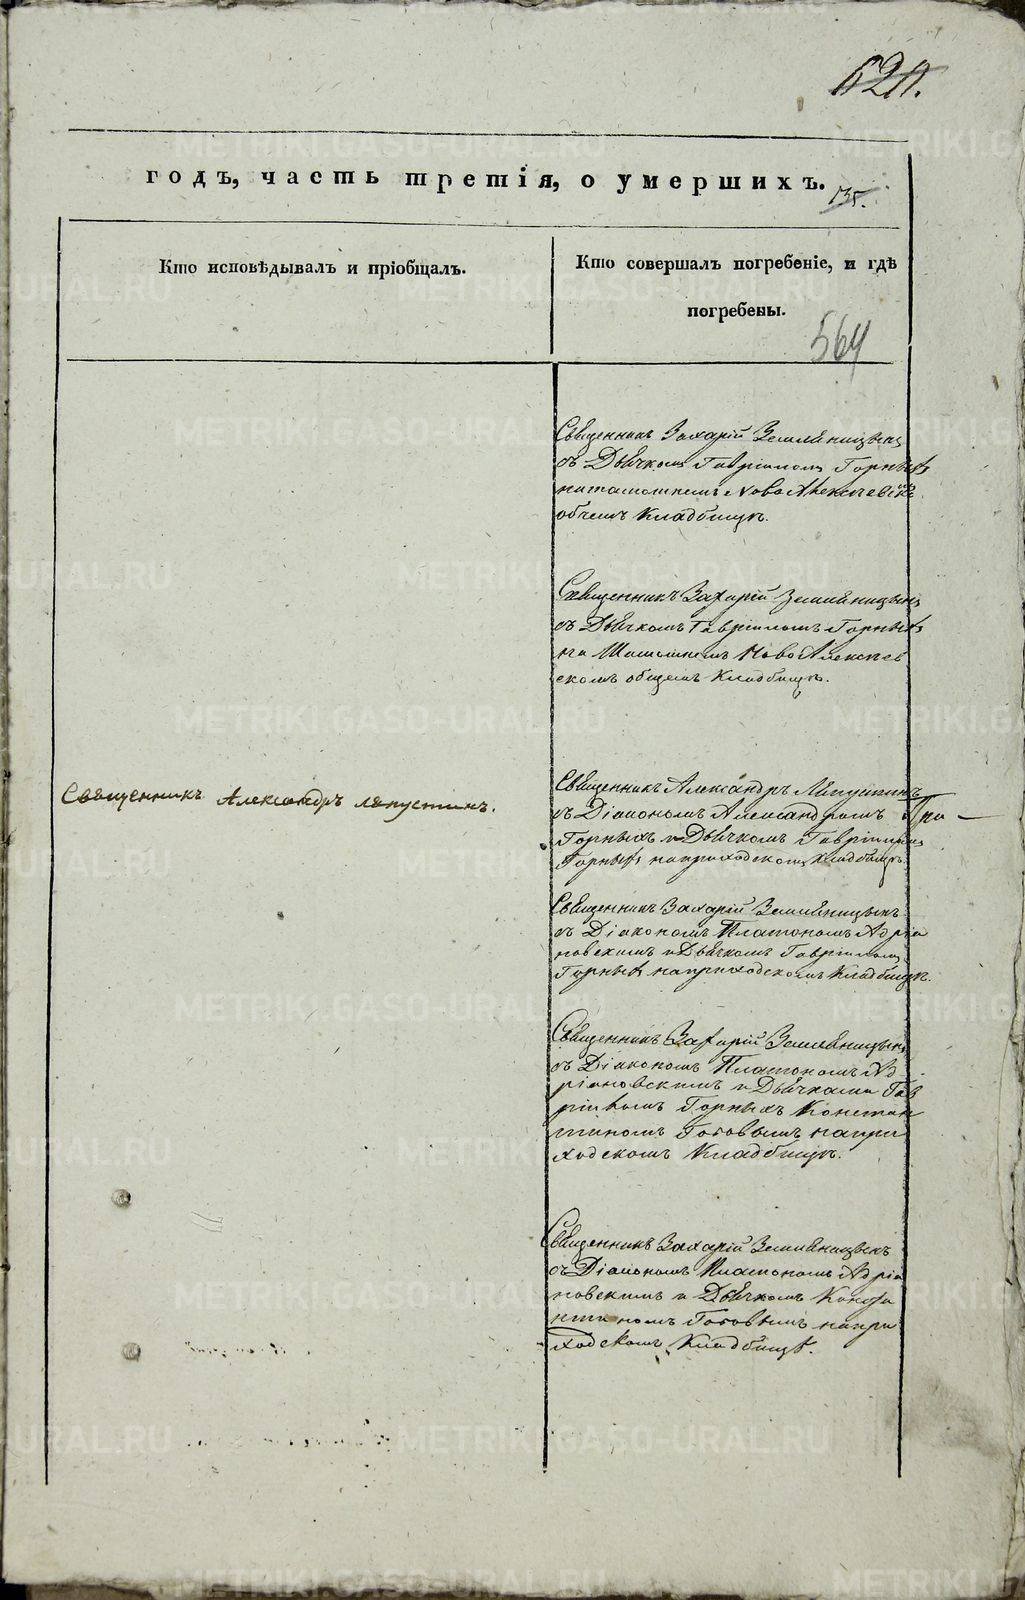 620.
годъ, часть третія, о умершихъ.
135.
Кто исповѣдывалъ и пріобщалъ.
Кто совершалъ погребеніе, и гдѣ
погребены.
564
Священникъ Захарій Земляницынъ
съ Дьячкомъ Гавріиломъ Горныхъ
на тамошнемъ Ново Алексѣевскомъ
общемъ Кладбищѣ.
Священникъ Захарій Земляницынъ
съ Дьячкомъ Гавріиломъ Горныхъ
на Тамошнемъ Ново Алексѣев
скомъ общемъ Кладбищѣ.
Священникъ Александръ Ляпустинъ.
Священникъ Александръ Ляпустинъ
съ Діакономъ Александромъ
Горныхъ и Дьячкомъ Гавріиломъ
Горныхъ на приходскомъ Кладбищѣ
Священникъ Захарій Земляницынъ
съ Діакономъ Платономъ Адріа
новскимъ и Дьячкомъ Гавріиломъ
Горныхъ на приходскомъ Кладбищѣ.
Священникъ Захарій Земляницынъ
съ Діакономъ Платономъ Ад
ріановскимъ и Дьячками Гав
ріиломъ Горныхъ Констан
тиномъ Гоговымъ на при
ходскомъ Кладбищѣ.
Священникъ Захарій Земляницынъ
съ Діакономъ Платономъ Адріа
новскимъ и Дьячкомъ Конста
нтиномъ Гоговымъ на при
ходскомъ Кладбищѣ.
METRIKI.GASO-URAL.RU